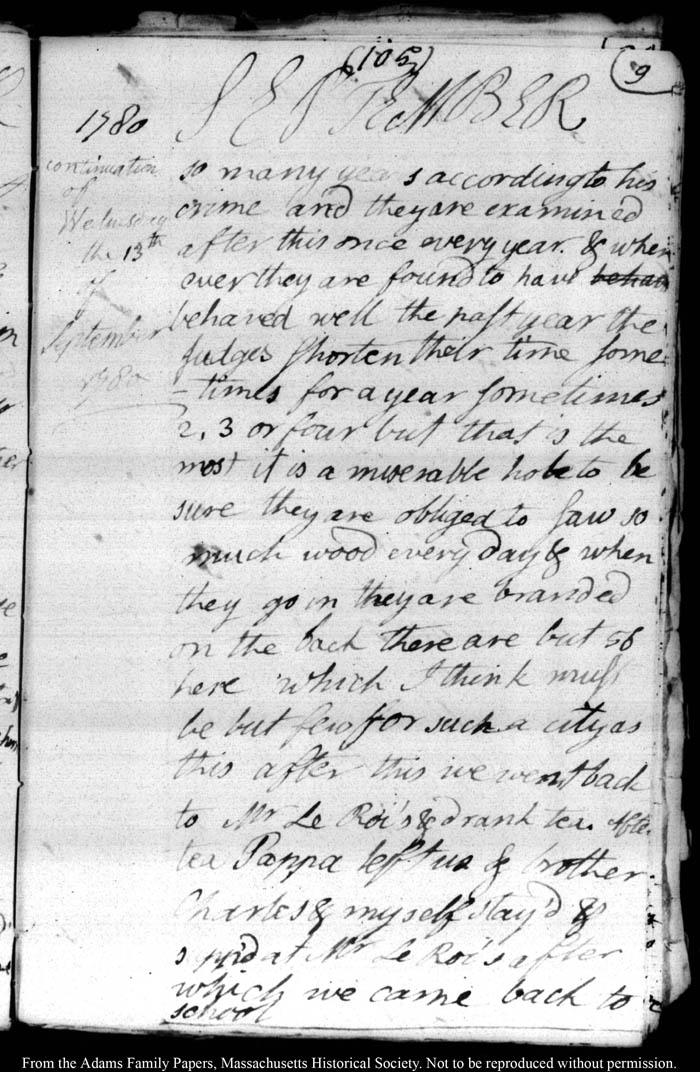 (105)
9
1780
SEPTEMBER
continuation
of
Wednesday
the 13th
of
September
1780
so many years according to his
crime and they are examined
after this once every year. & when
ever they are found to have behav
behaved well the past year the
judges shorten their time some
-times for a year sometimes
2, 3 or four but that is the
most it is a miserable hole to be
sure they are obliged to saw so
much wood every day & when
they go in they are branded
on the back there are but 56
here which I think must
be but few for such a city as
this after this we went back
to Mr Le Roi's & drank tea. After
tea Pappa left us & brother
Charles & myself stay'd &
supp'd at Mr Le Roi's after
which we came back to
school
From the Adams Family Papers, Massachusetts Historical Society. Not to be reproduced without permission.